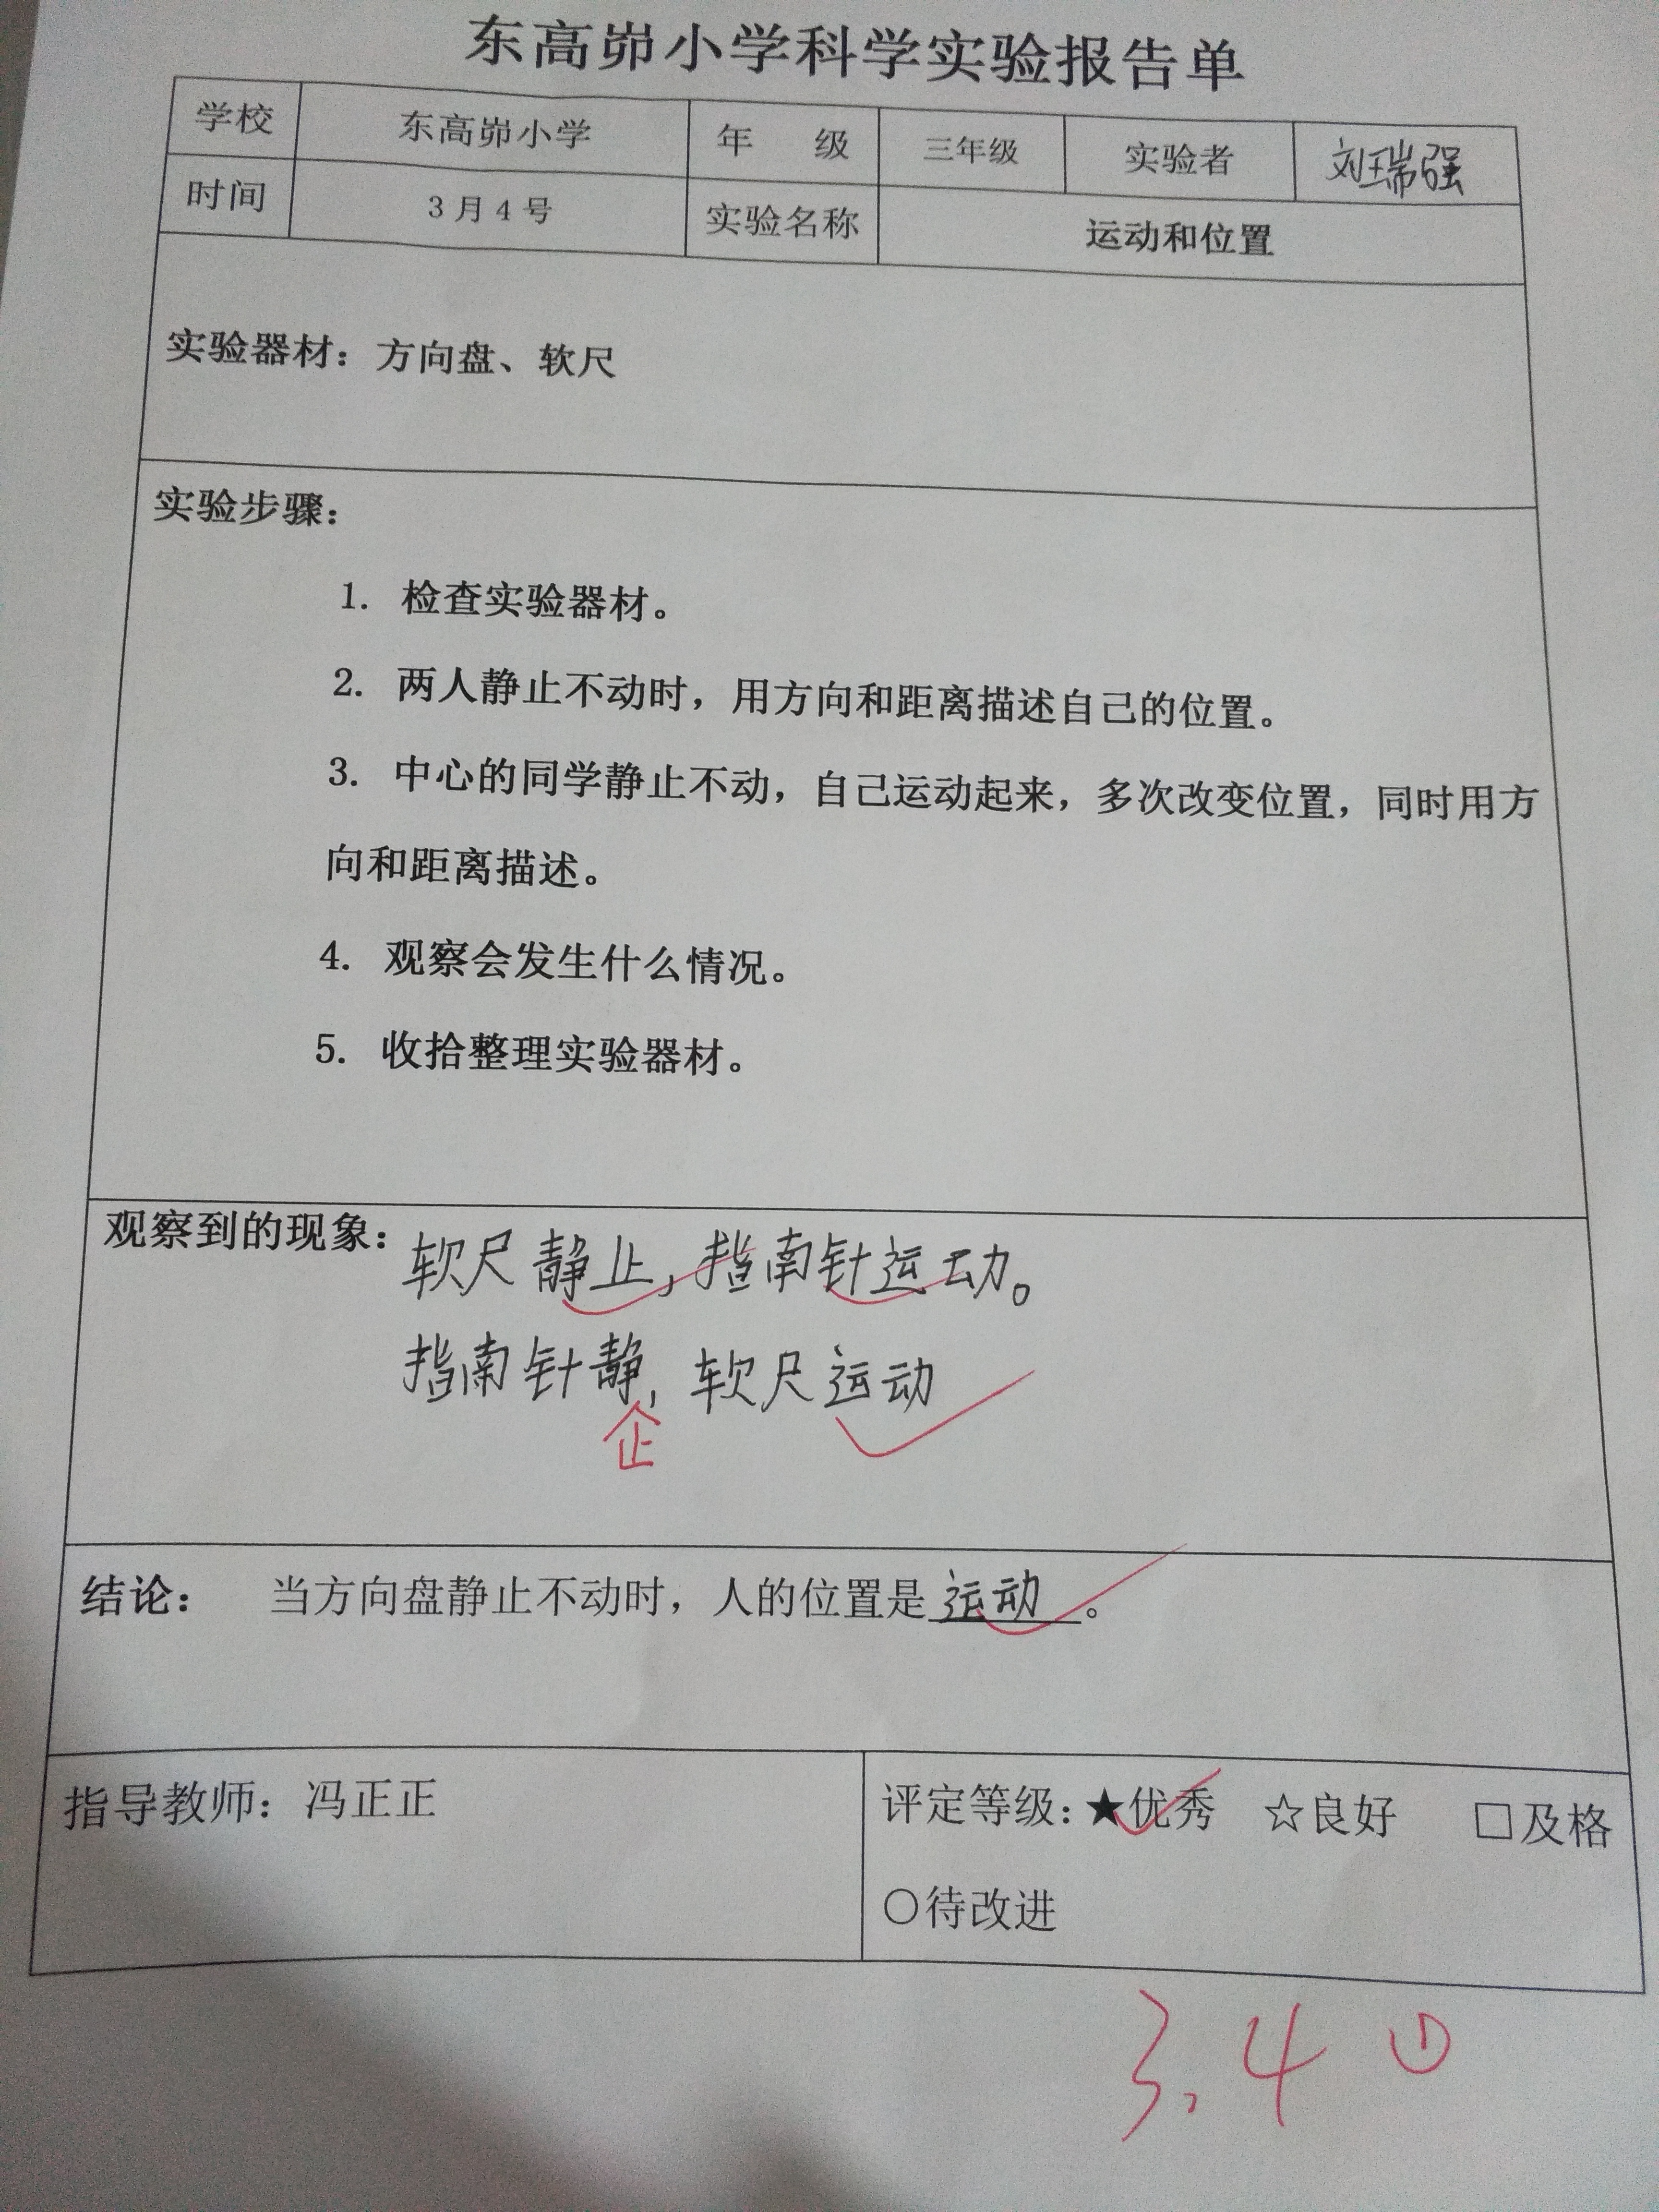 东高峁小学科学实验报告单
学校 东高峁小学 年 级 三年级 实验者 刘瑞强
时间 3月4号 实验名称 运动和位置
实验器材：方向盘、软尺
实验步骤：
1. 检查实验器材。
2. 两人静止不动时，用方向和距离描述自己的位置。
3. 中心的同学静止不动，自己运动起来，多次改变位置，同时用方
向和距离描述。
4. 观察会发生什么情况。
5. 收拾整理实验器材。
观察到的现象：软尺静止，指南针运动。
指南针静，软尺运动
止
结论： 当方向盘静止不动时，人的位置是运动。
指导教师：冯正正
评定等级：★优秀 ☆良好 □及格
○待改进
3.4 ①